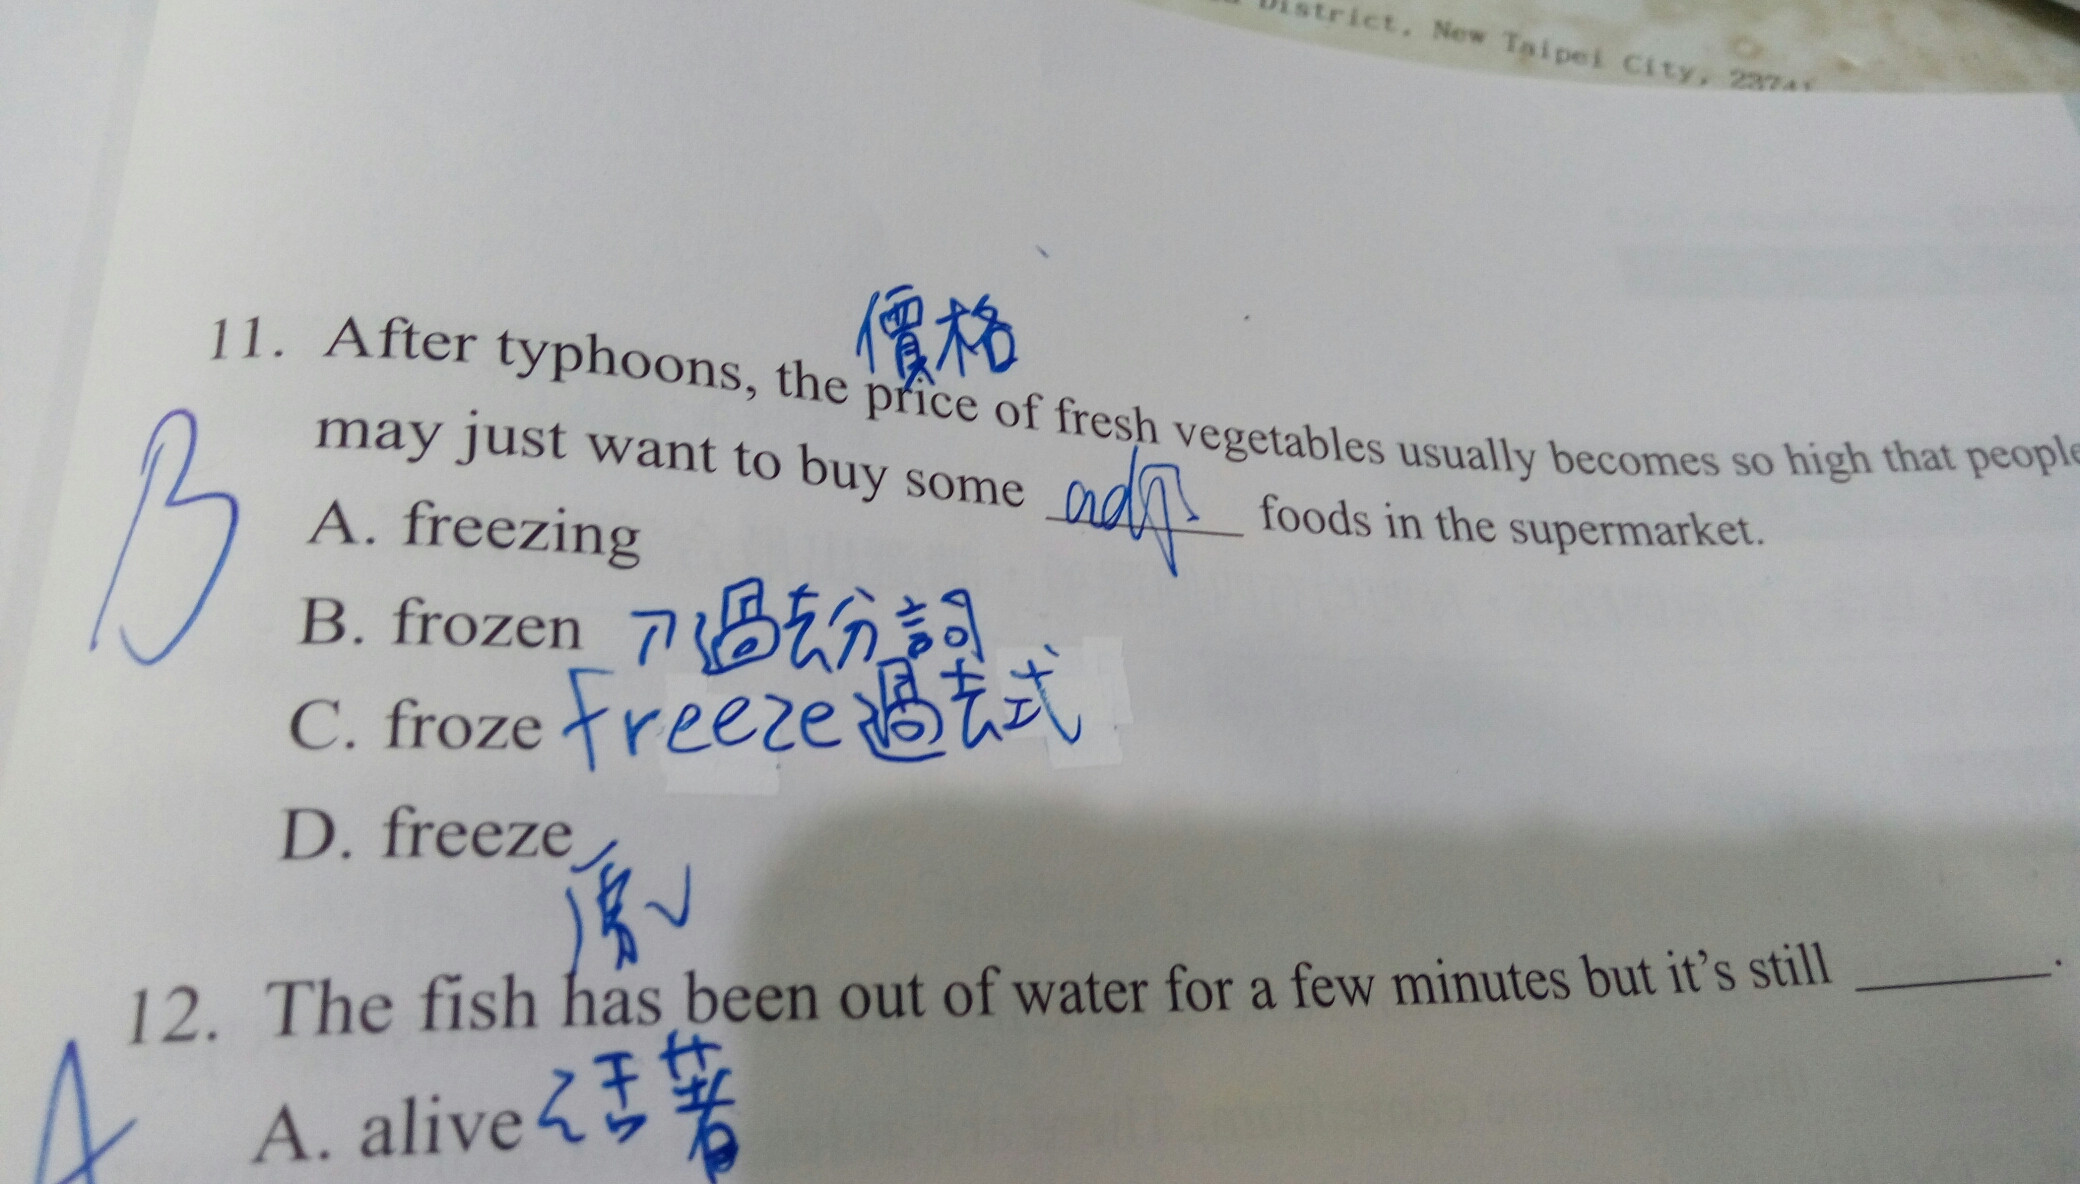 District, New Taipei City,
價格
11. After typhoons, the price of fresh vegetables usually becomes so high that people
may just want to buy some adj foods in the supermarket.
A. freezing
B. frozen 過去分詞
C. froze freeze過去式
D. freeze
原V
12. The fish has been out of water for a few minutes but it's still ______.
A. alive 活著
B
A